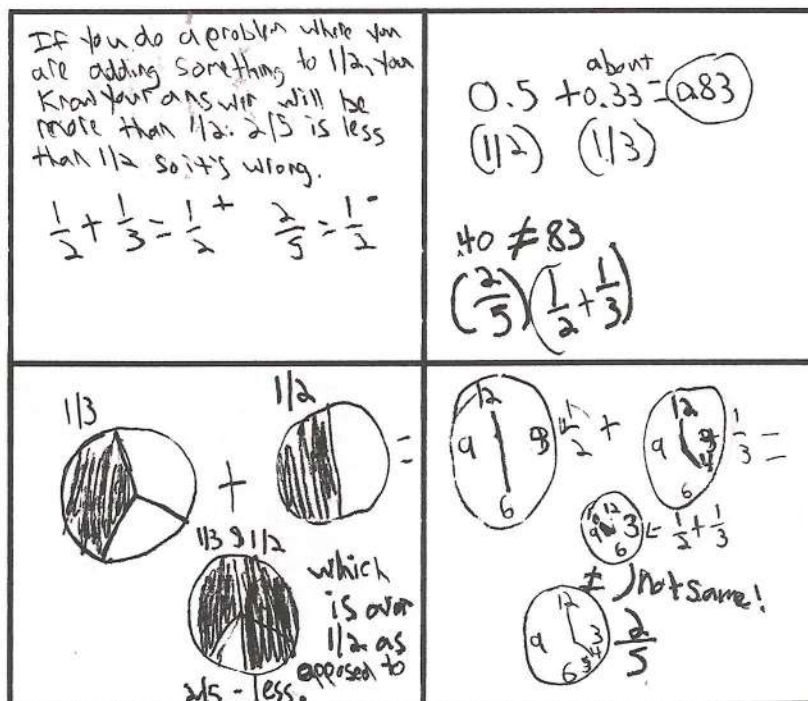 If you do a problem where you
are adding something to 1/2, you
know your answer will be
more than 1/2. 2/5 is less
than 1/2 so it's wrong.
1/2 + 1/3 = 1/2 + 2/5 = 1/2 -
about
0.5 + 0.33 = 0.83
(1/2) (1/3)
.40 ≠ .83
(2/5) (1/2 + 1/3)
1/3 + 1/2 =
1/3 & 1/2
which
is over
1/2 as
opposed to
2/5 - less.
12 9 3 6 1/2 + 12 9 4 6 1/3 =
12 9 3 6 = 1/2 + 1/3
≠ not same!
12 9 3 4 5 6 2/5